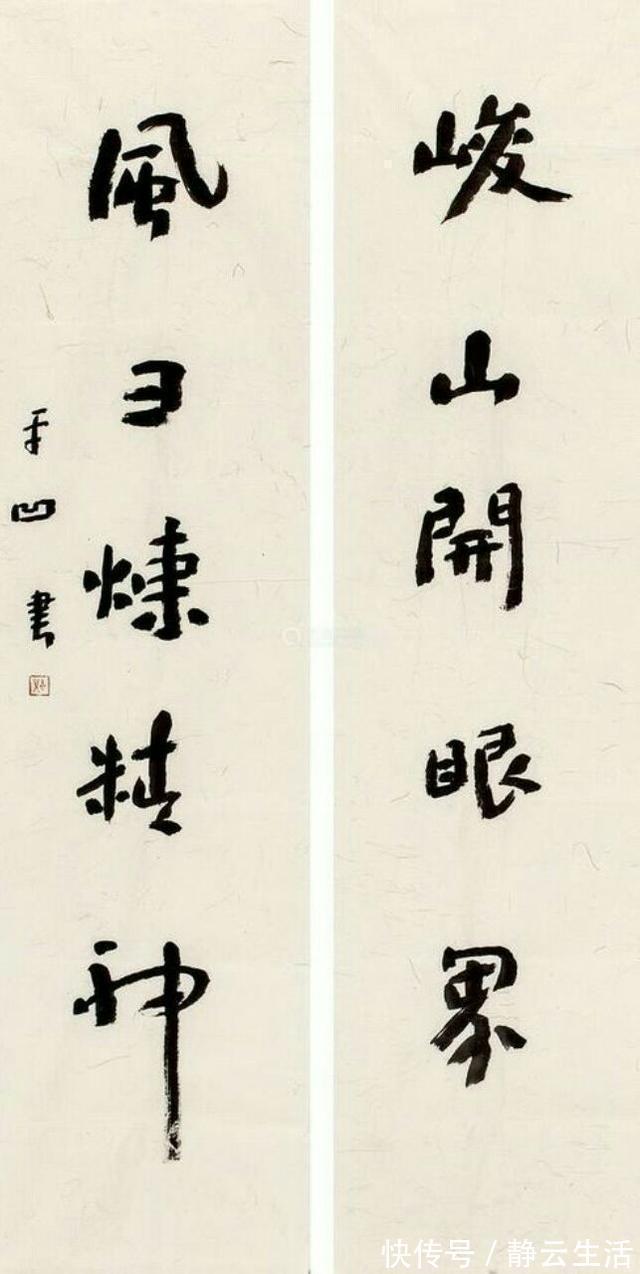 峻山開眼界
風彐煉精神
平凹書
快传号 / 静云生活